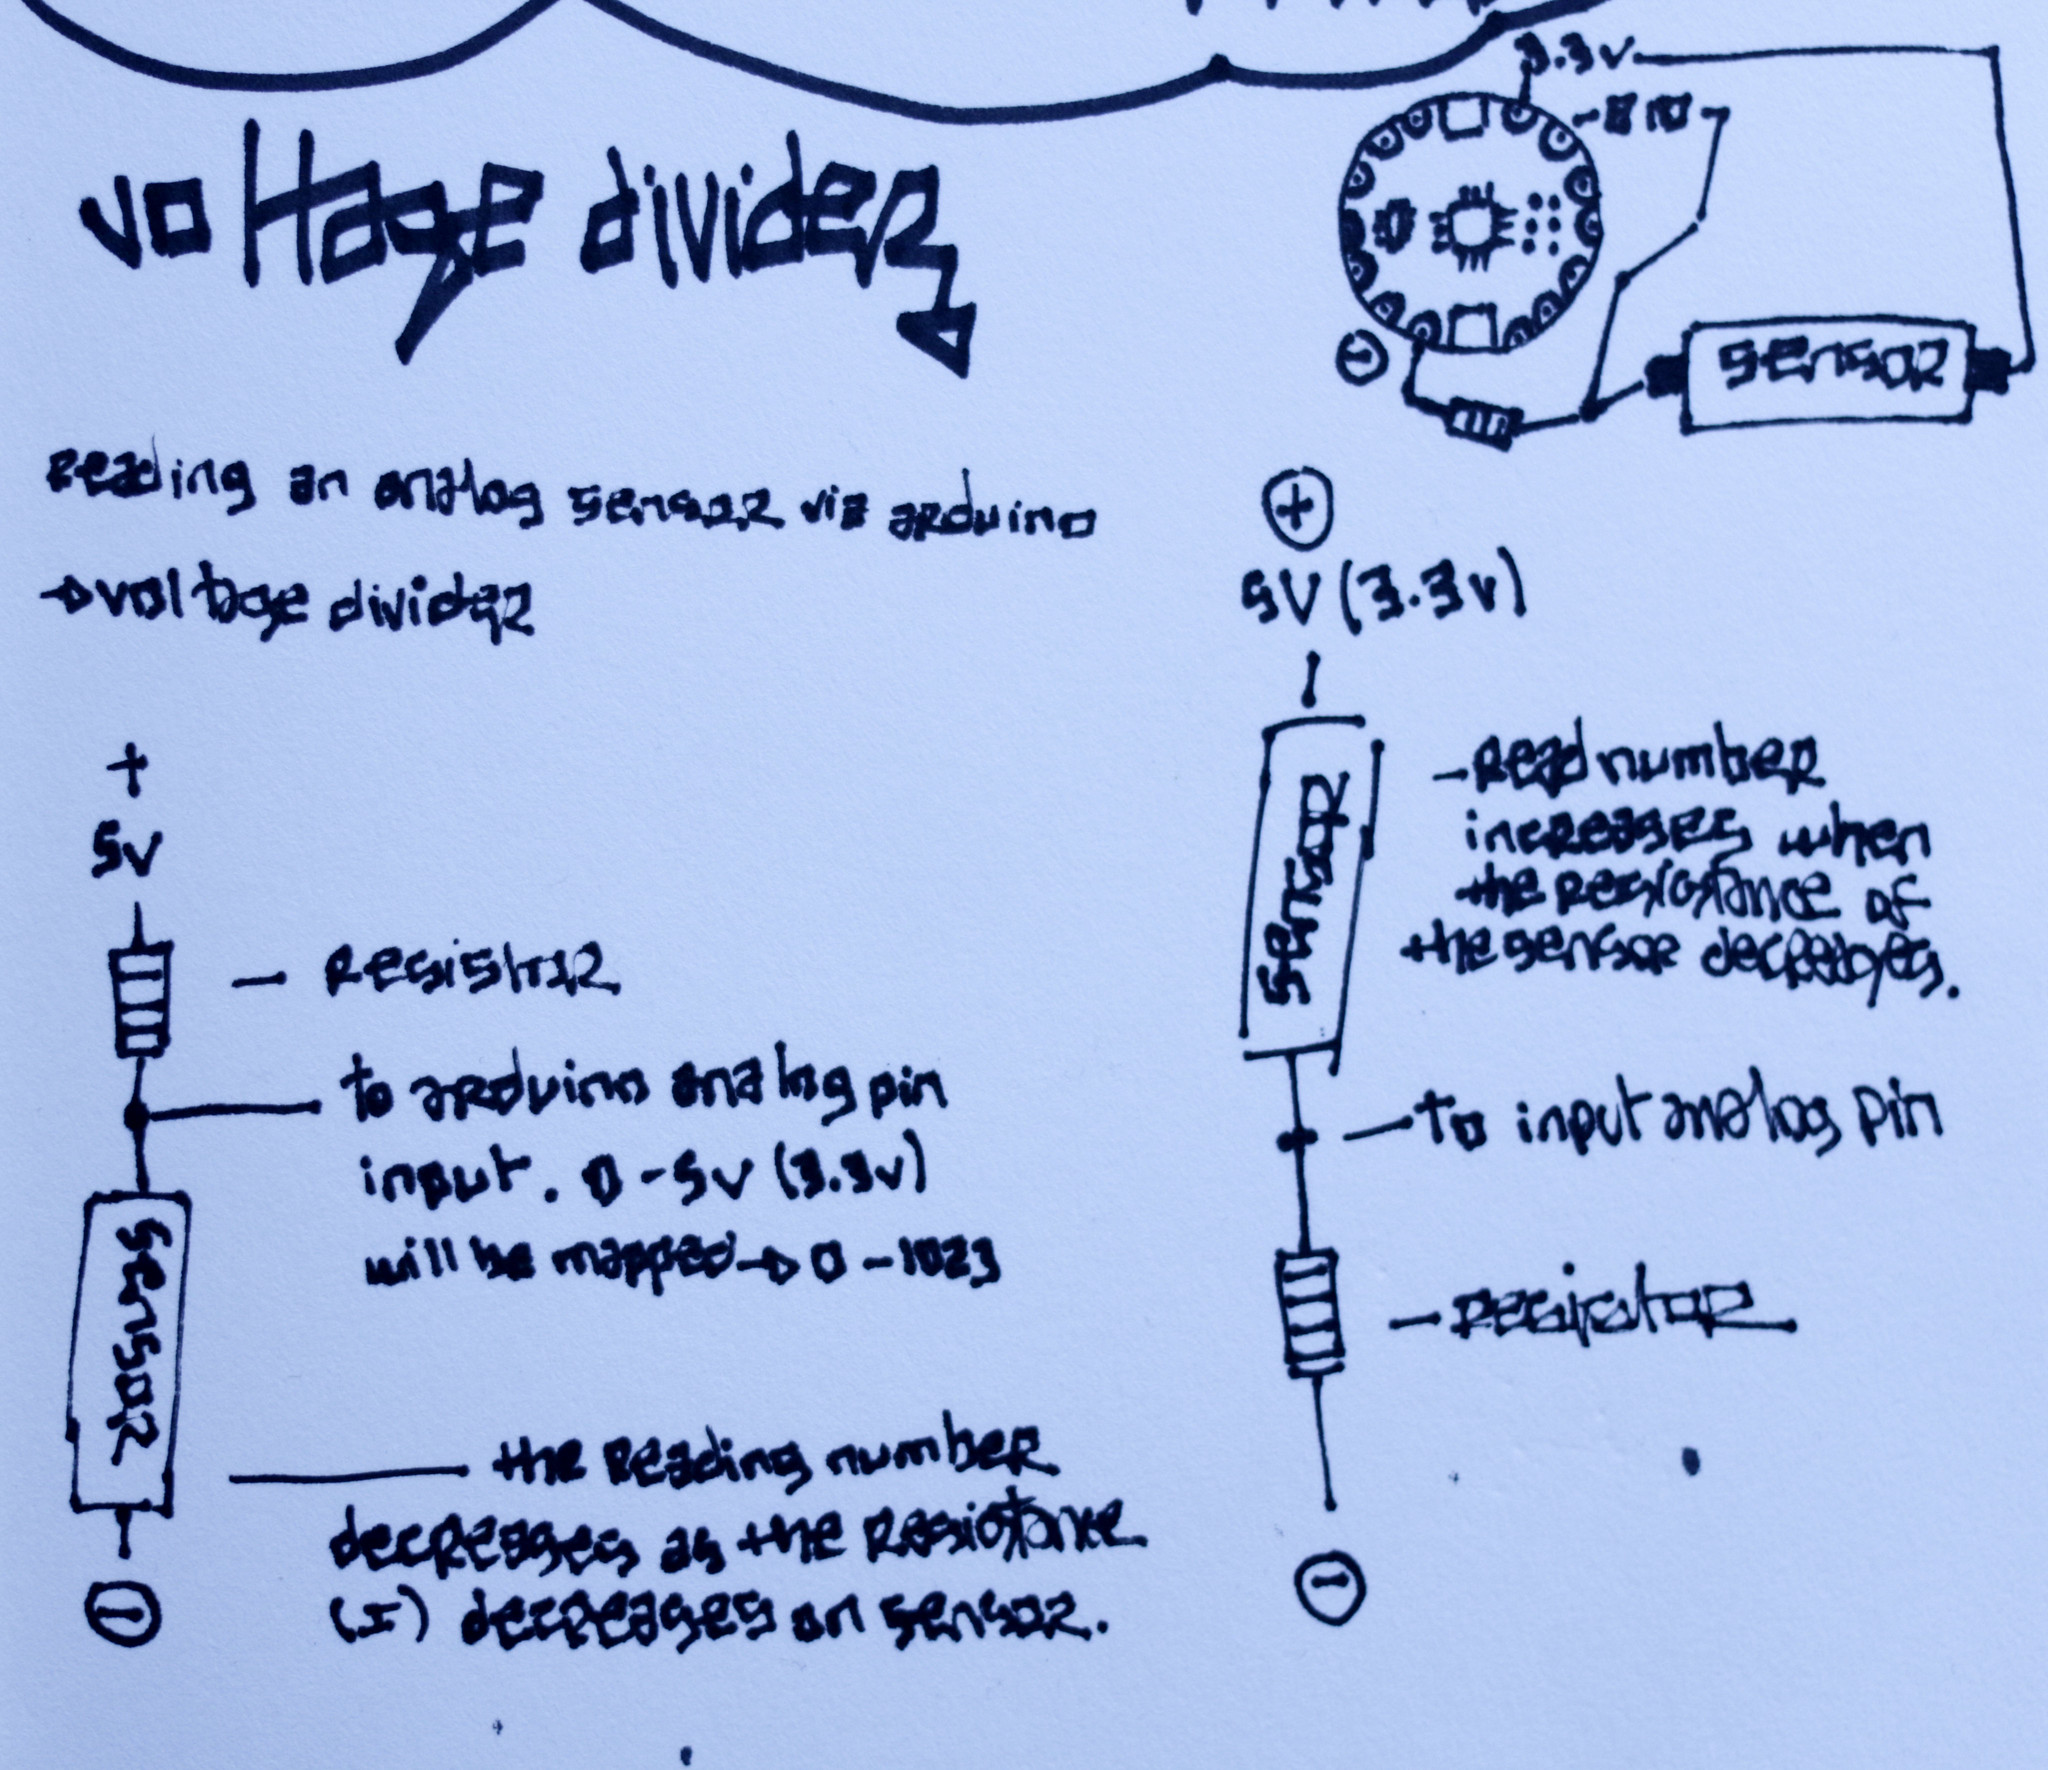 voltage divider
3.3v
sensor
reading an analog sensor via arduino
→voltage divider
+
5v
- resistor
to arduino analog pin
input. 0-5v (3.3v)
will be mapped→0-1023
sensor
the reading number
decreases as the resistance
decreases on sensor.
-
+
5V (3.3v)
sensor
-read number
increases when
the resistance of
the sensor decreases.
-to input analog pin
-resistor
-